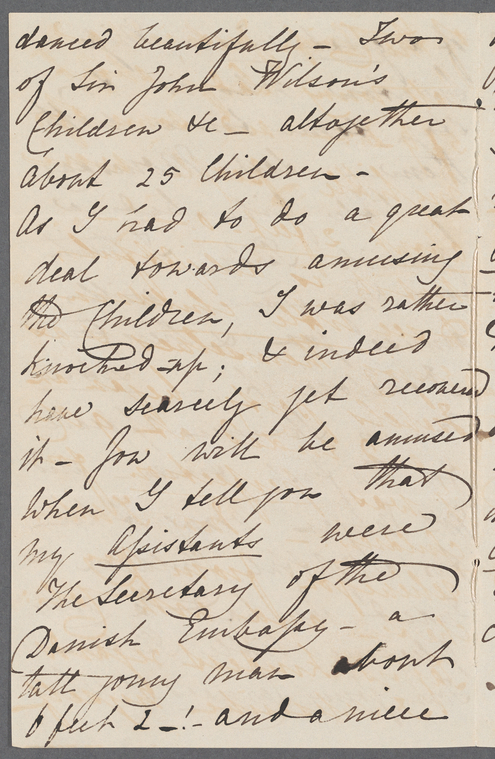 danced beautifully – Two
of Sir John Wilson's
Children &c – altogether
about 25 Children –
As I had to do a great
deal towards amusing
the Children, I was rather
knocked-up; & indeed
have scarcely yet recovered
it – You will be amused
when I tell you that
my Assistants were
The Secretary of the
Danish Embassy – a
tall young man about
6 feet 2 –! – and a niece